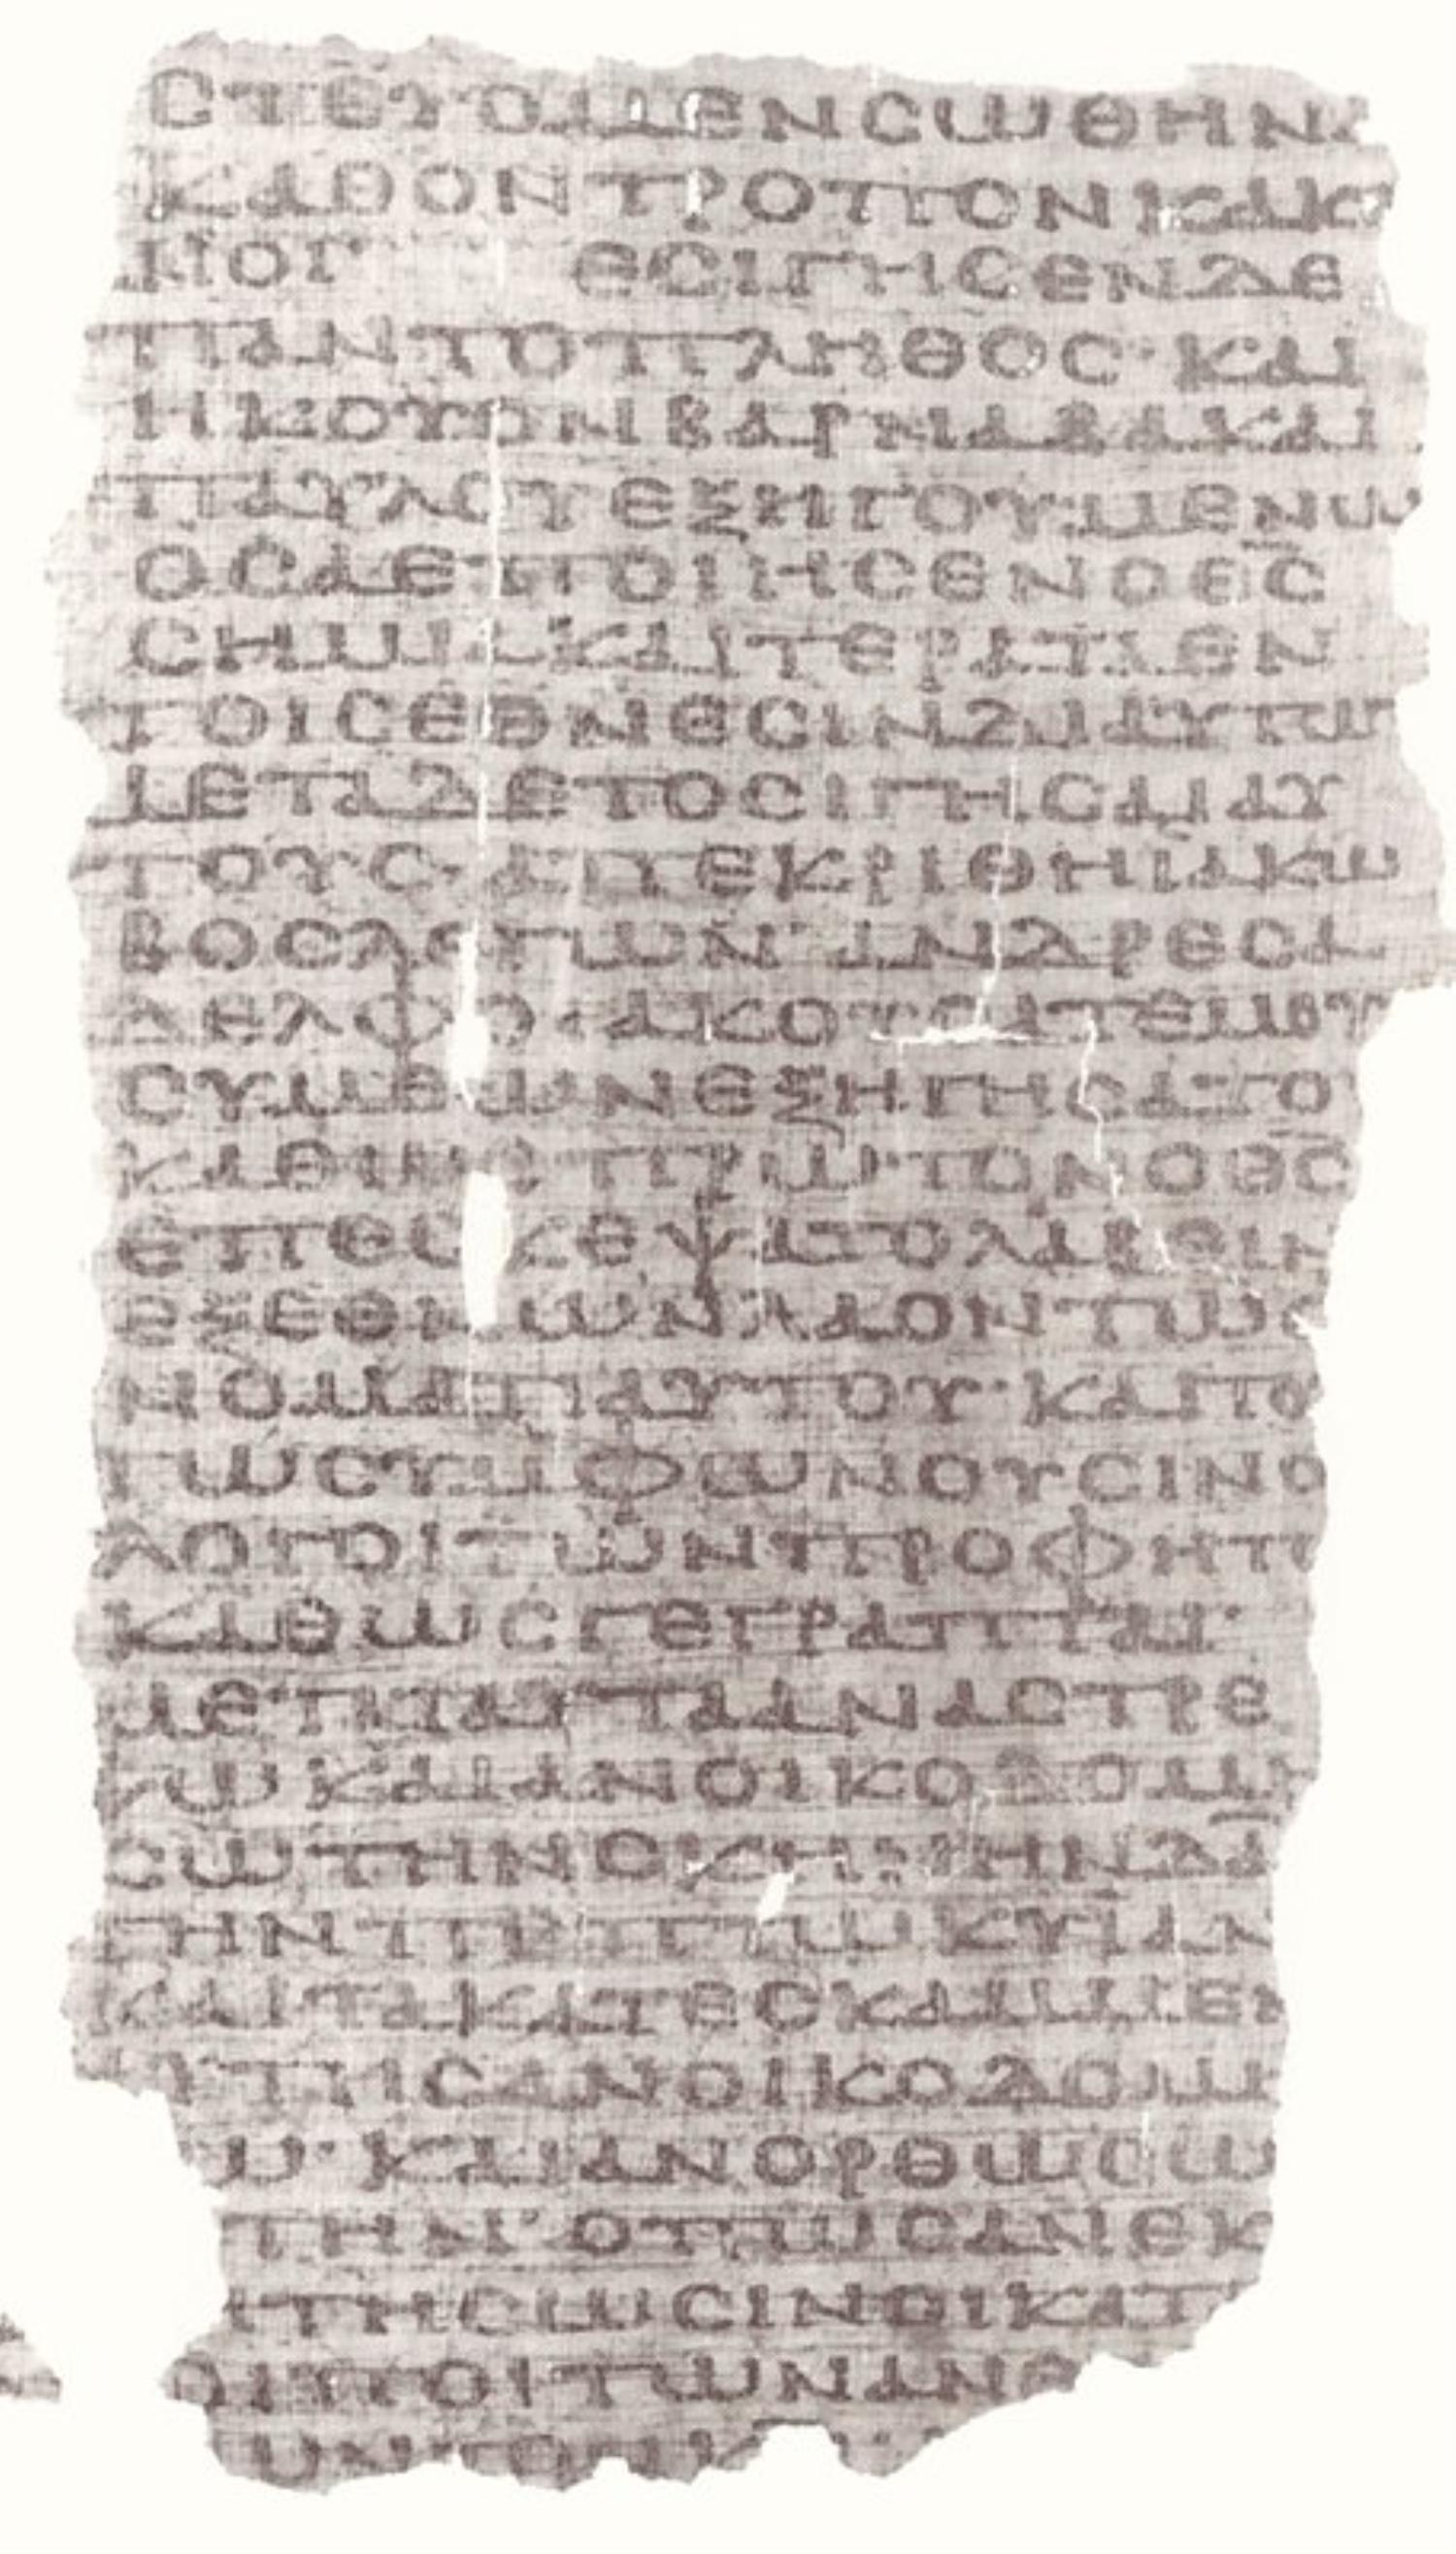 СΤΕΥΟΜΕΝСΩΘΗΝΑΙ
ΚΑΘΟΝΤΡΟΠΟΝΚΑΚΕΙ
ΝΟΙ ΕСΙΓΗСΕΝΔΕ
ΠΑΝΤΟΠΛΗΘΟС·ΚΑΙ
ΗΚΟΥΟΝΒΑΡΝΑΒΑΚΑΙ
ΠΑΥΛΟΥΕΞΗΓΟΥΜΕΝΩ
ΟСΑΕΠΟΙΗСΕΝΟΘ̅С̅
СΗΜΙΑΚΑΙΤΕΡΑΤΑΕΝ
ΤΟΙСΕΘΝΕСΙΝΔΙΑΥΤΩ
ΜΕΤΑΔΕΤΟСΙΓΗСΑΙΑΥ
ΤΟΥС·ΑΠΕΚΡΙΘΗΪΑΚΩ
ΒΟСΛΕΓΩΝ·ΑΝΔΡΕСΑ
ΔΕΛΦΟΙΑΚΟΥСΑΤΕΜΟΥ
СΥΜΕΩΝΕΞΗΓΗСΑΤΟ
ΚΑΘΩСΠΡΩΤΟΝΟΘ̅С̅
ΕΠΕСΚΕΨΑΤΟΛΑΒΕΙΝ
ΕΞΕΘΝΩΝΛΑΟΝΤΩΟ
ΝΟΜΑΤΙΑΥΤΟΥ·ΚΑΙΤΟΥ
ΤΩСΥΜΦΩΝΟΥСΙΝΟ
ΛΟΓΟΙΤΩΝΠΡΟΦΗΤΩ
ΚΑΘΩСΓΕΓΡΑΠΤΑΙ·
ΜΕΤΑΤΑΥΤΑΑΝΑСΤΡΕ
ΨΩΚΑΙΑΝΟΙΚΟΔΟΜΗ
СΩΤΗΝСΚΗΝΗΝΔΑ̅
ΤΗΝΠΕΠΤΩΚΥΙΑΝ
ΚΑΙΤΑΚΑΤΕСΚΑΜΜΕΝ
ΥΤΗСΑΝΟΙΚΟΔΟΜΗ
Ω·ΚΑΙΑΝΟΡΘΩСΩ
ΤΗΝ·ΟΠΩСΑΝΕΚ
ΖΗΤΗСΩСΙΝΟΙΚΑΤΑ
ΟΙΠΟΙΤΩΝΑΝΘ
ΩΝΤΟΝΚ